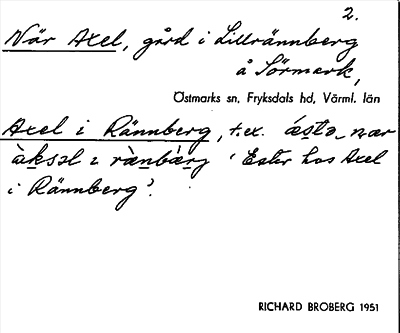 2.
När Axel, gård i Lillrännberg
å Sörmark,
Östmarks sn, Fryksdals hd, Värml. län
Axel i Rännberg, t.ex. æ̀stə, nær
àksəl ɪ ræ̀nbæ̀rj 'Ester hos Axel
i Rännberg'.
RICHARD BROBERG 1951